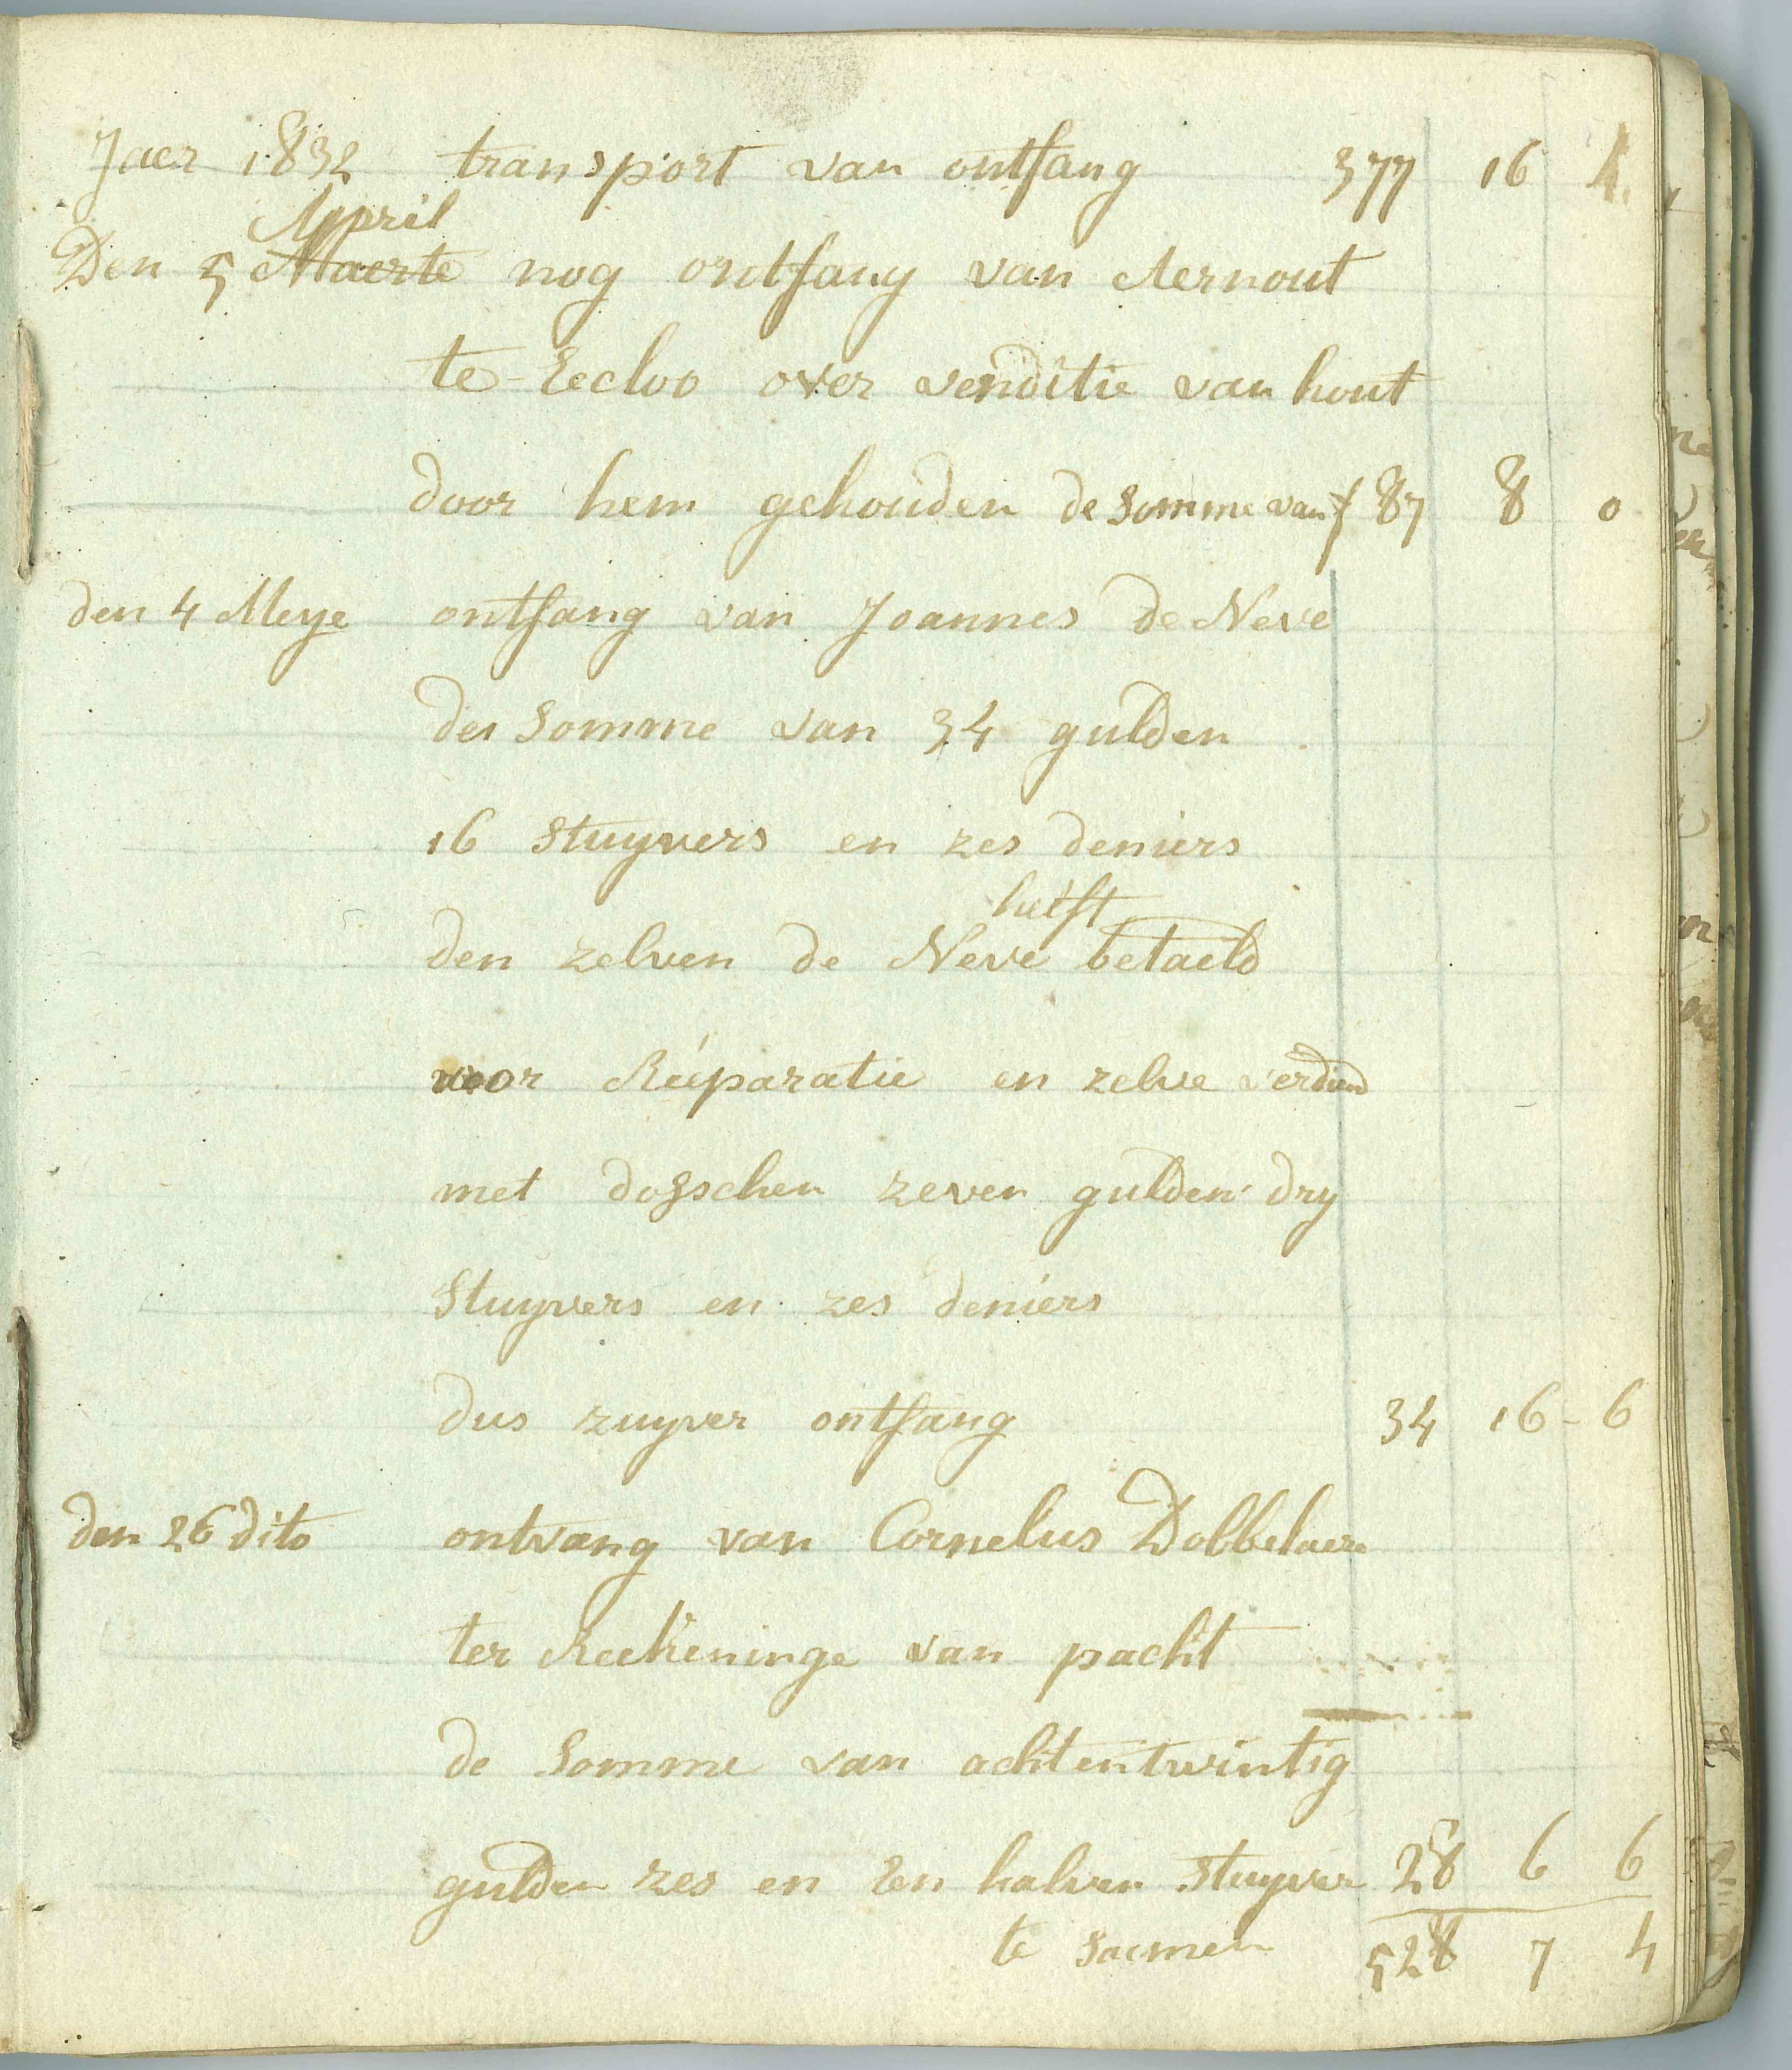 Jaer 1832 transport van ontfang 377 16 4.
April
Den 5 Maerte nog ontfang van Aernout
te Eecloo over venditie van hout
door hem gehouden de Somme van f 87 8 0
den 4 Meye ontfang van Joannes de Neve
de Somme van 34 gulden
16 Stuyvers en zes deniers
heift
den zelven de Neve betaeld
voor Réeparatie en zelve verdiend
met dosschen zeven gulden dry
Stuyvers en zes deniers
dus zuyver ontfang 34 16 - 6
den 26 dito ontvang van Cornelus Dobbelaere
ter Reekeninge van pacht
de Somme van achtentwintig
gulden zes en Een halven Stuyver 28 6 6
te Saemen 528 7 4